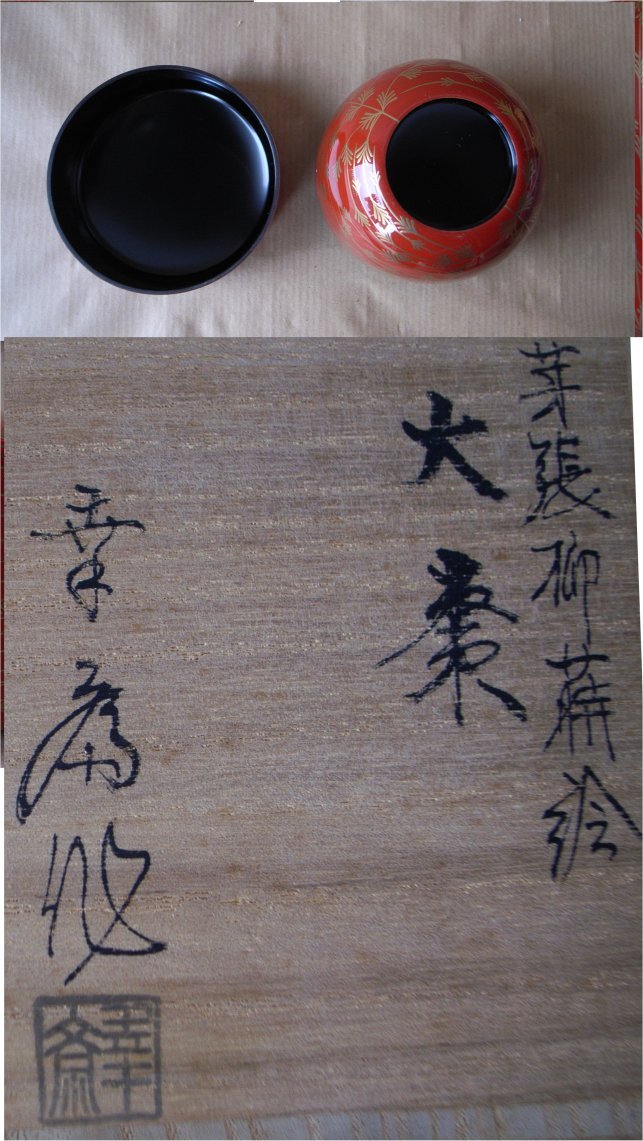 芽張柳蒔絵
大棗
幸斎作
幸斎